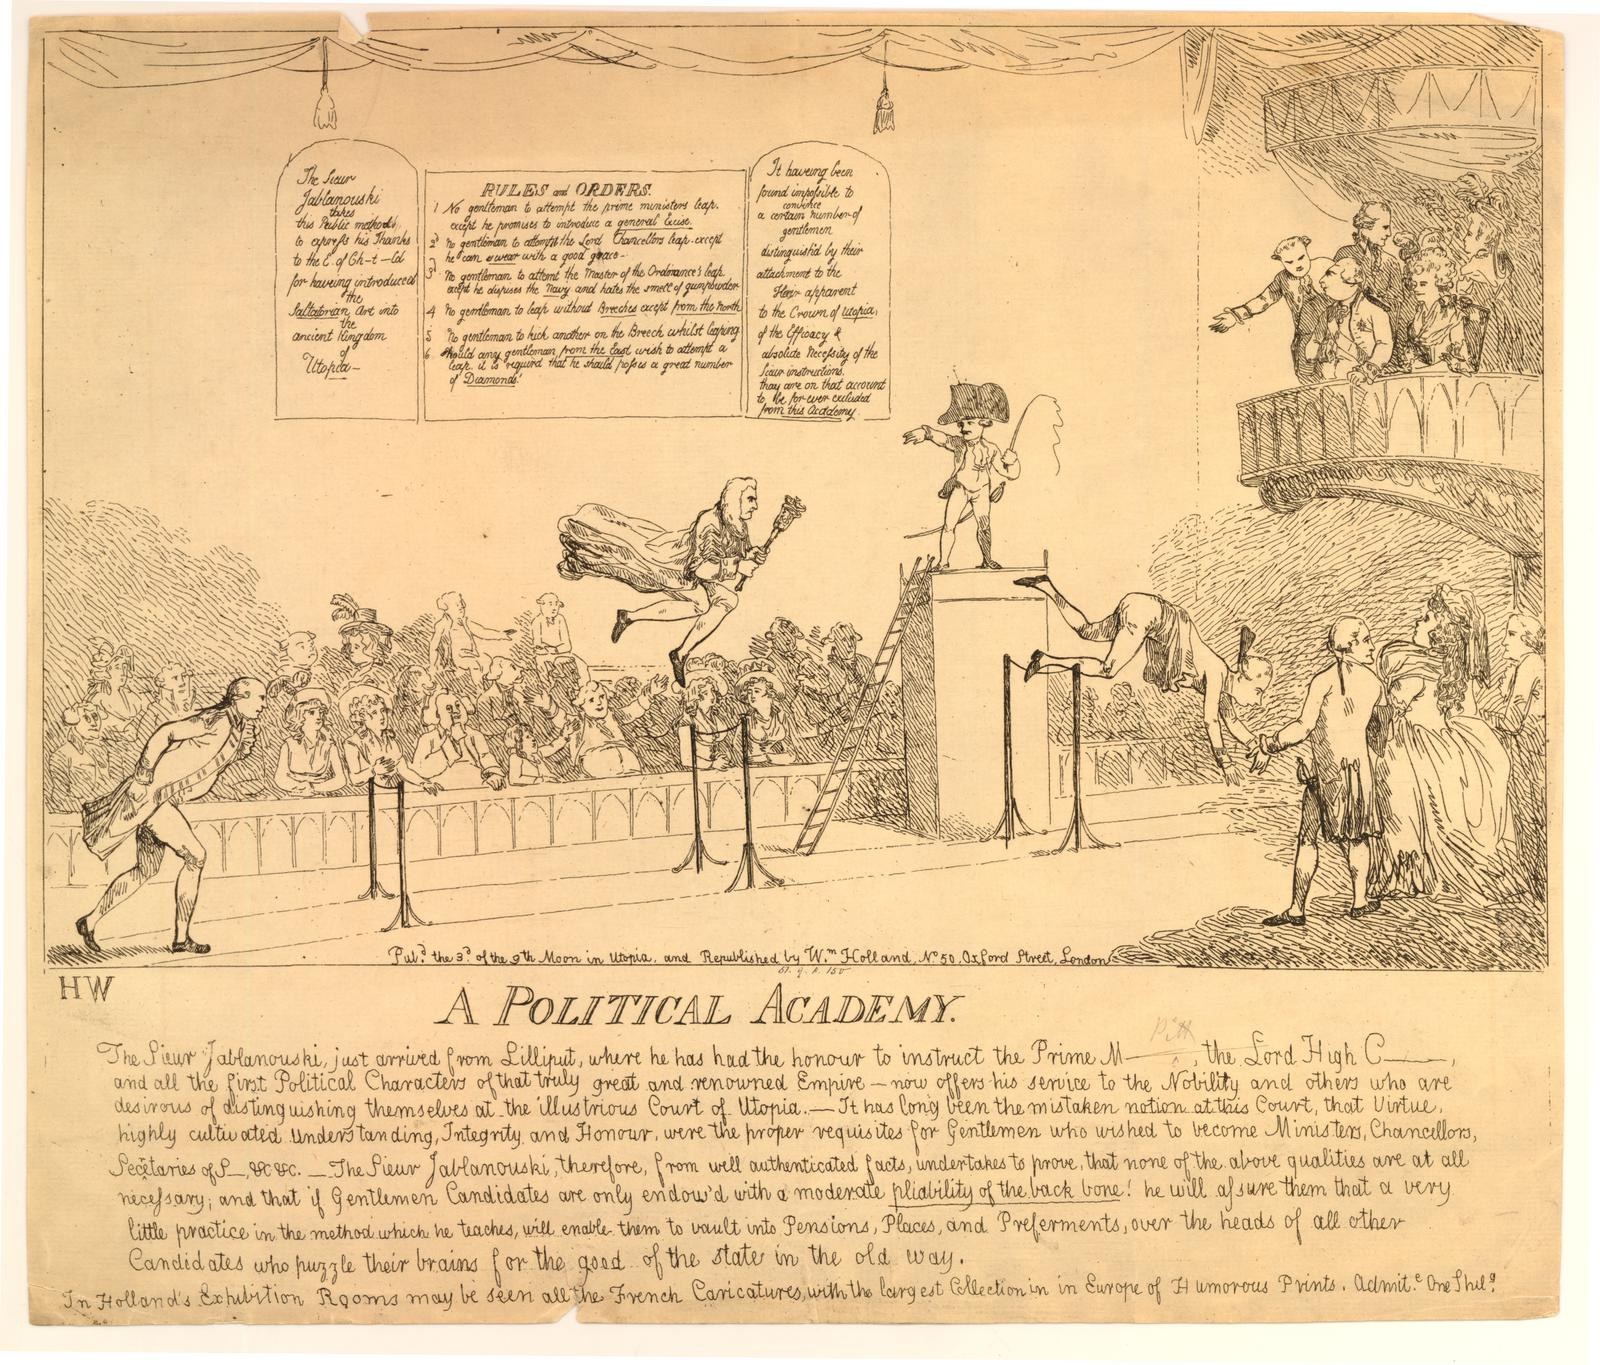 The Sieur
Jablanouski
takes
this Public method
to express his Thanks
to the E. of Ch-t-ld
for haveing introduced
the
Saltatorian Art into
the
ancient Kingdom
of
Utopia-
RULES and ORDERS.
1 No gentleman to attempt the prime ministers leap.
except he promises to introduce a general Excise.
2 No gentleman to attempt the Lord Chancellors leap. except
he can swear with a good grace-
3 No gentleman to attemt the Master of the Ordinance's leap.
except he dispises the Navy and hates the smell of gunpowder
4 No gentleman to leap without Breeches except from the North
5 No gentleman to kick another on the Breech whilst leaping
6 Should any gentleman from the East wish to attempt a
leap. it is requird that he should posses a great number
of Diamonds.
It haveing been
found impossible to
convince
a certain number of
gentlemen
distinguish'd by their
attachment to the
Heir apparent
to the Crown of Utopia,
of the Efficacy &
absolute Necessity of the
Sieur instructions.
thay are on that account
to be for ever excluded
from this Academy.
Pub.d the 3.d of the 9th Moon in Utopia. and Republished by W.m Holland, No 50. Oxford Street, London
HW
A POLITICAL ACADEMY.
Pitt
The Sieur Jablanouski, just arrived from Lilliput, where he has had the honour to instruct the Prime M——, the Lord High C——,
and all the first Political Characters of that truly great and renowned Empire — now offers his service to the Nobility and others who are
desirous of distinguishing themselves at the illustrious Court of Utopia. — It has long been the mistaken notion at this Court, that Virtue,
highly cultivated Understanding, Integrity and Honour, were the proper requisites for Gentlemen who wished to become Ministers, Chancellors,
Secetaries of S—, &c &c. — The Sieur Jablanouski, therefore, from well authenticated facts, undertakes to prove, that none of the above qualities are at all
necessary; and that if Gentlemen Candidates are only endow'd with a moderate pliability of the back bone! he will assure them that a very
little practice in the method which he teaches, will enable them to vault into Pensions, Places, and Preferments, over the heads of all other
Candidates who puzzle their brains for the good of the state in the old way.
In Holland's Exhibition Rooms may be seen all the French Caricatures, with the largest Collection in in Europe of Humorous Prints. Admit.e One Shil.g